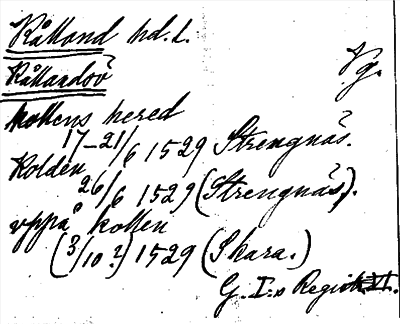 Kålland hd. l.
Kållandsö Vg.
kollens hered
17-21/6 1529 Strengnäs.
Kolden
26/6 1529 (Strengnäs).
vppå kollen
(3/10 ?) 1529 (Skara.)
G. I:s Registr. VI.